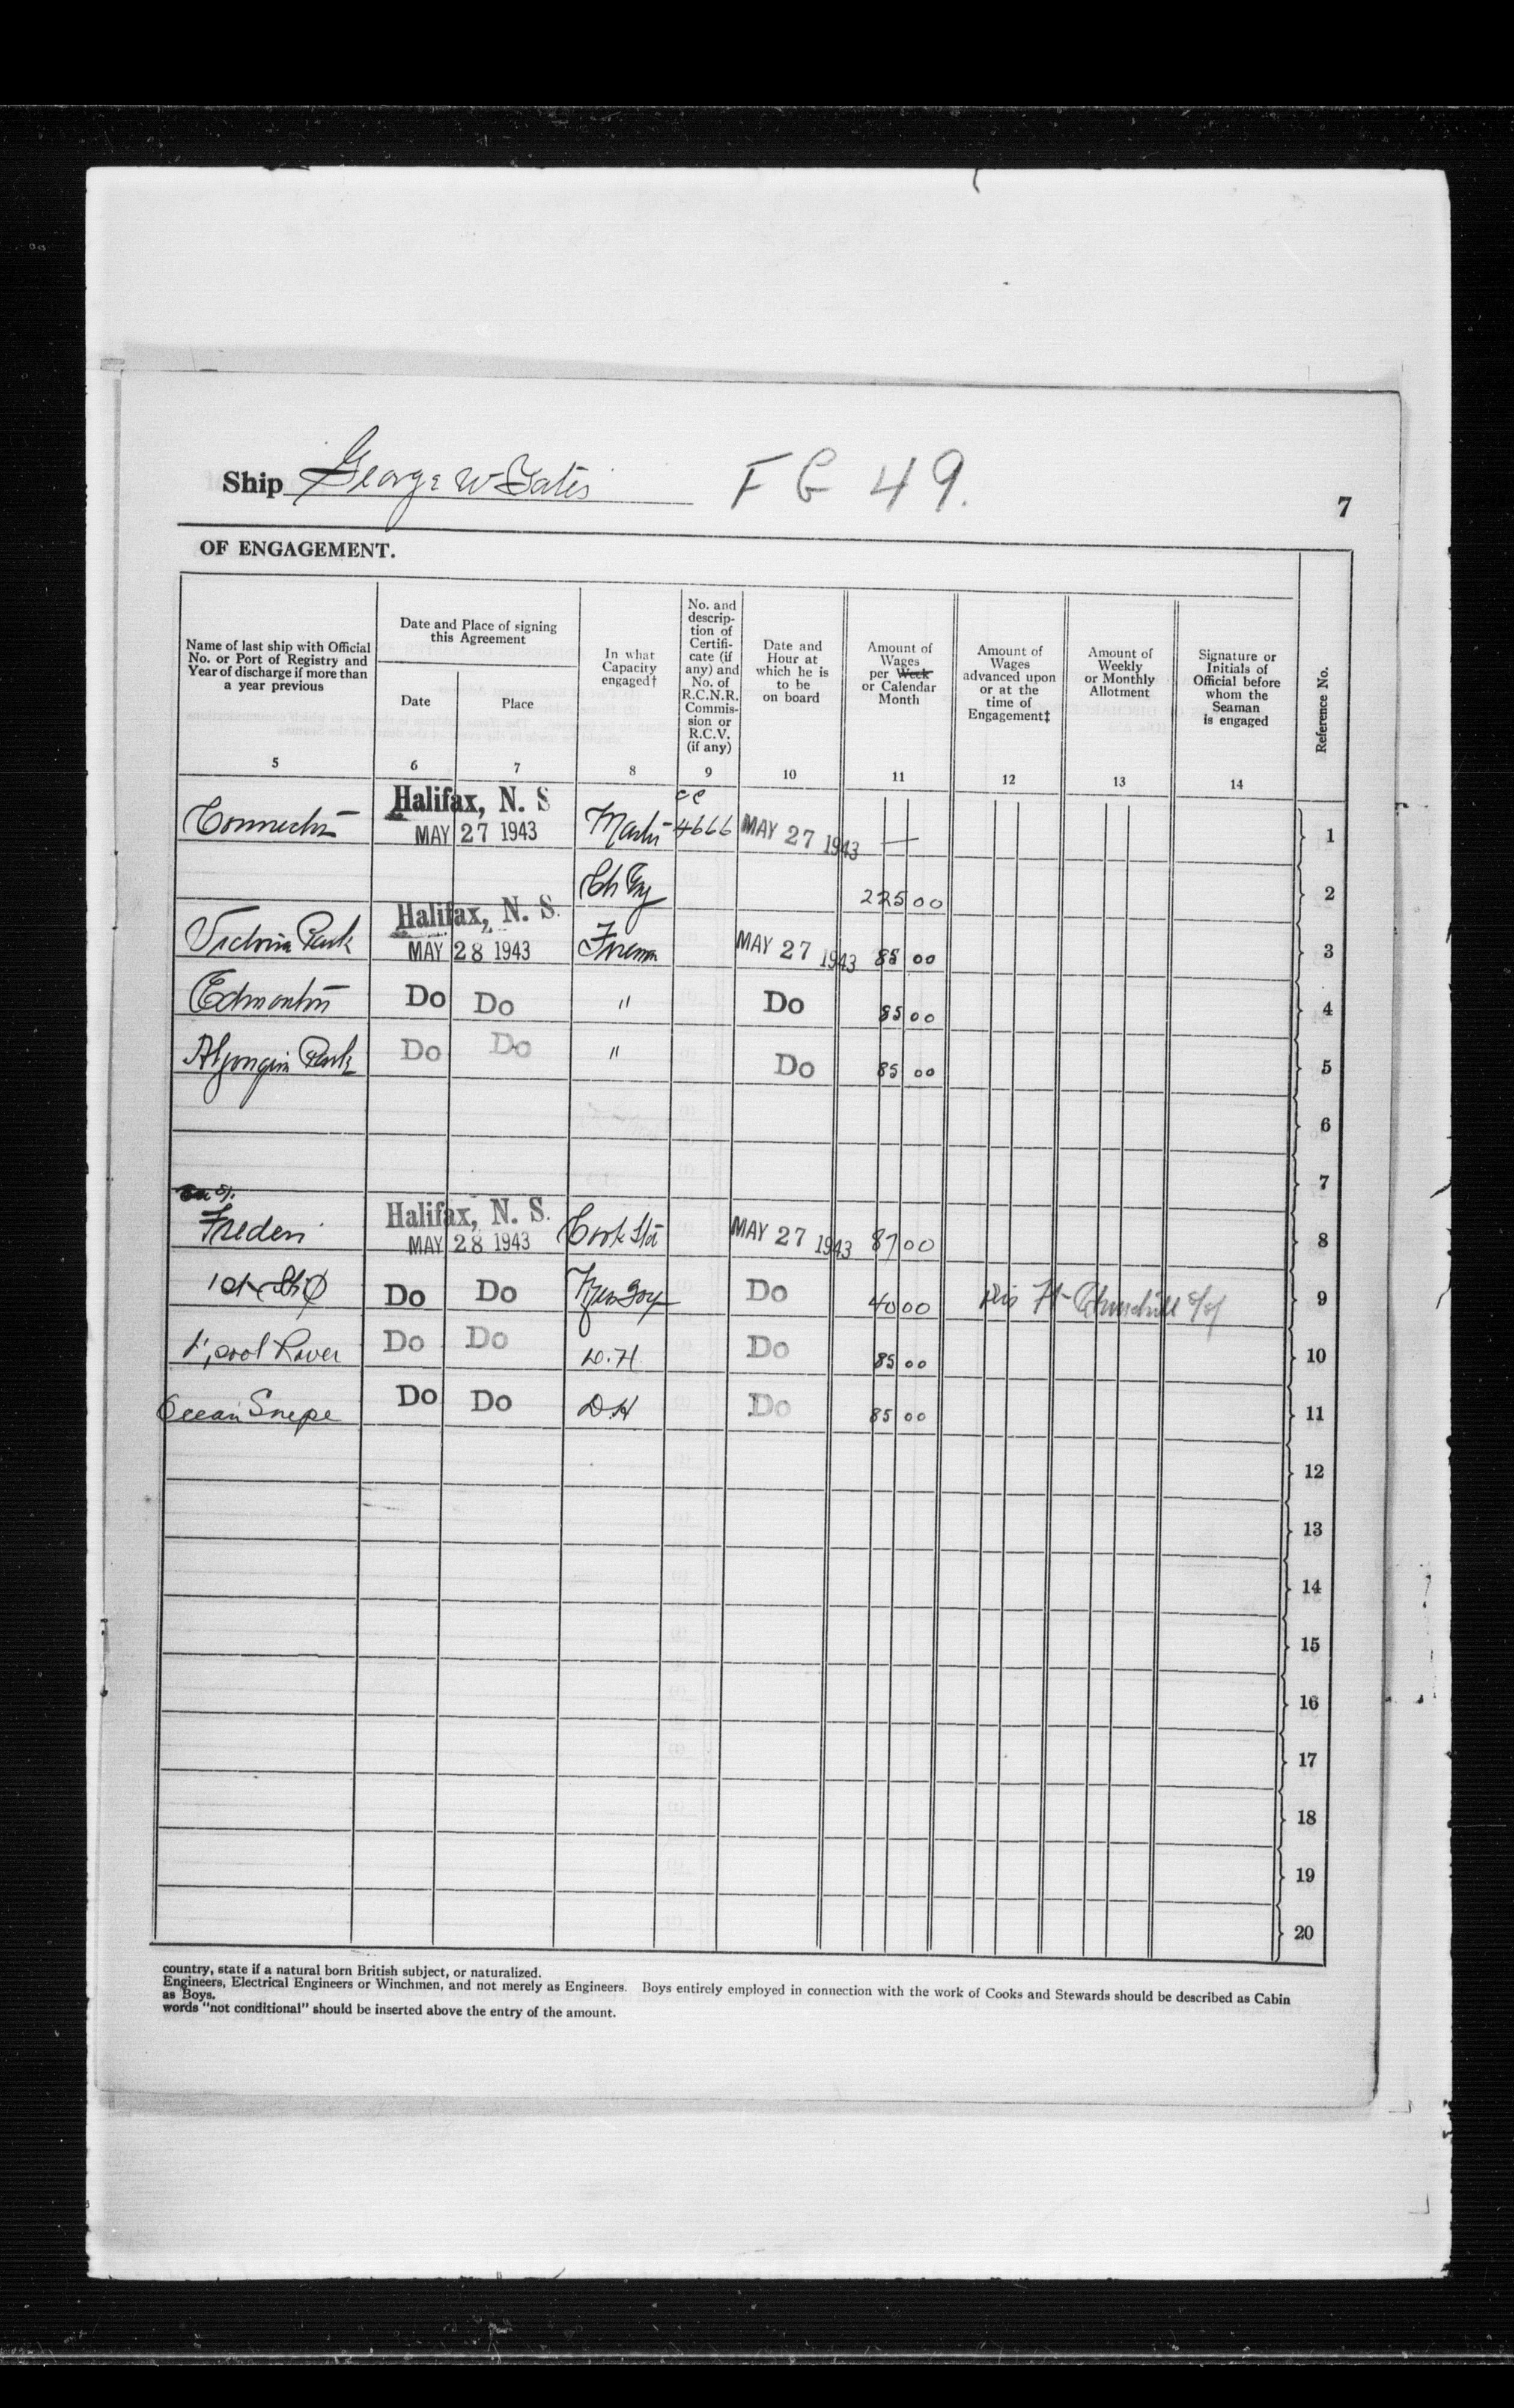 Ship George W Yates F G 49.
7
OF ENGAGEMENT.
Name of last ship with Official No. or Port of Registry and Year of discharge if more than a year previous
Date and Place of signing this Agreement
Date
Place
In what Capacity engaged†
No. and descrip-tion of Certifi-cate (if any) and No. of R.C.N.R. Commis-sion or R.C.V. (if any)
Date and Hour at which he is to be on board
Amount of Wages per Week or Calendar Month
Amount of Wages advanced upon or at the time of Engagement‡
Amount of Weekly or Monthly Allotment
Signature or Initials of Official before whom the Seaman is engaged
Reference No.
5 6 7 8 9 10 11 12 13 14
Halifax, N. S
MAY 27 1943 4666 MAY 27 1943 — 1
Ch Eng 225 00 2
Halifax, N. S.
Victoria Park MAY 28 1943 Fireman MAY 27 1943 85 00 3
Edmonton Do Do " Do 85 00 4
Algonquin Park Do Do " Do 85 00 5
6
7
Halifax, N. S.
MAY 28 1943 Cook MAY 27 1943 87 00 8
1st Ship Do Do Do 40 00 Churchill 9
L'pool Rover Do Do D.H. Do 85 00 10
Ocean Do Do D.H Do 85 00 11
12
13
14
15
16
17
18
19
20
country, state if a natural born British subject, or naturalized.
Engineers, Electrical Engineers or Winchmen, and not merely as Engineers. Boys entirely employed in connection with the work of Cooks and Stewards should be described as Cabin
as Boys.
words "not conditional" should be inserted above the entry of the amount.